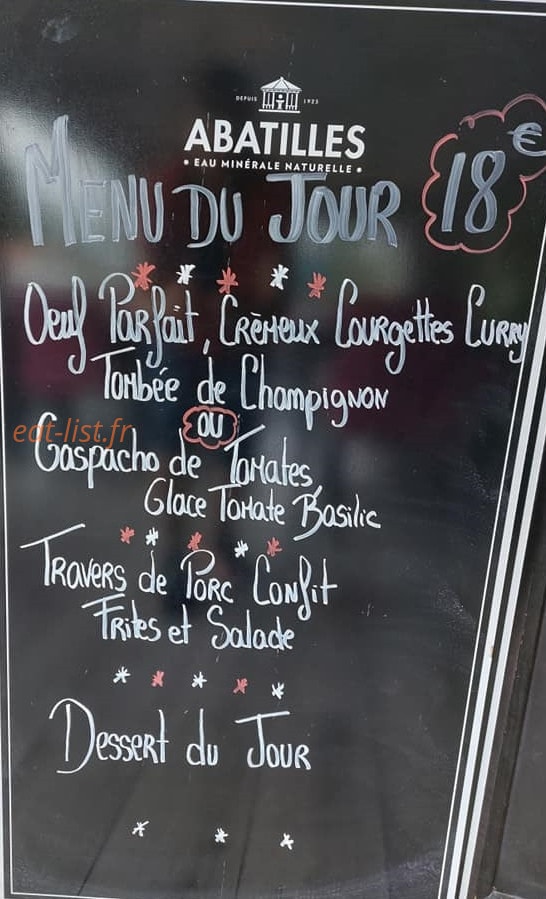 DEPUIS 1925
ABATILLES
• EAU MINÉRALE NATURELLE •
MENU DU JOUR 18 €
Oeuf Parfait, Crèmeux Courgettes Curry
Tombée de Champignon
OU
eat-list.fr
Gaspacho de Tomates,
Glace Tomate Basilic
Travers de Porc Confit
Frites et Salade
Dessert du Jour